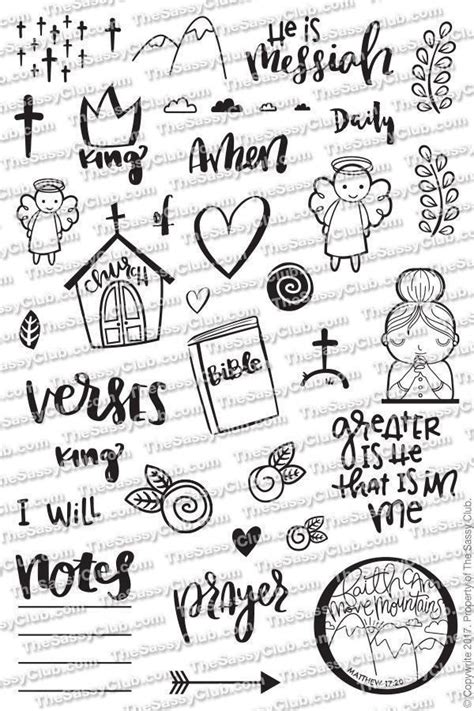 TheSassyClub.com
He is
Messiah
Daily
King
Amen
of
Church
Bible
Verses
King
I will
greater
is He
that is in
me
notes
prayer
faith can
move mountains
MATTHEW 17:20
© Copywrite 2017. Property of The Sassy Club.